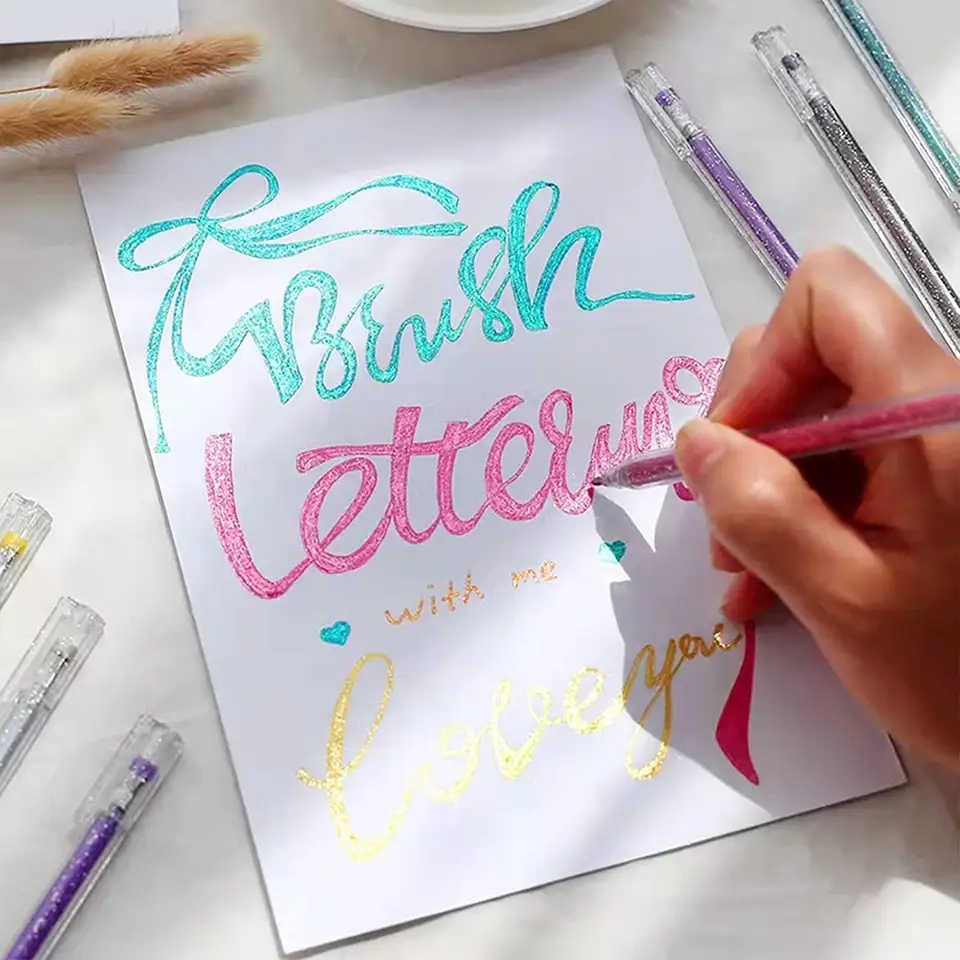 Brush
Lettering
with me
love you